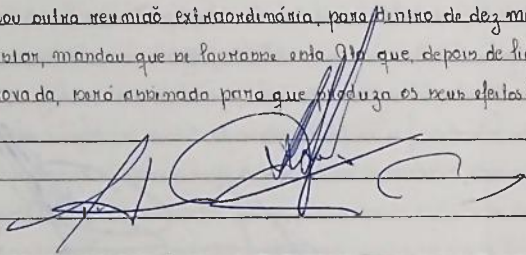 ou outra reunião extraordinária, para dentro de dez m
mandou que se lavrasse esta Ata que, depois de li
ovada, será assinada para que produza os seus efeitos